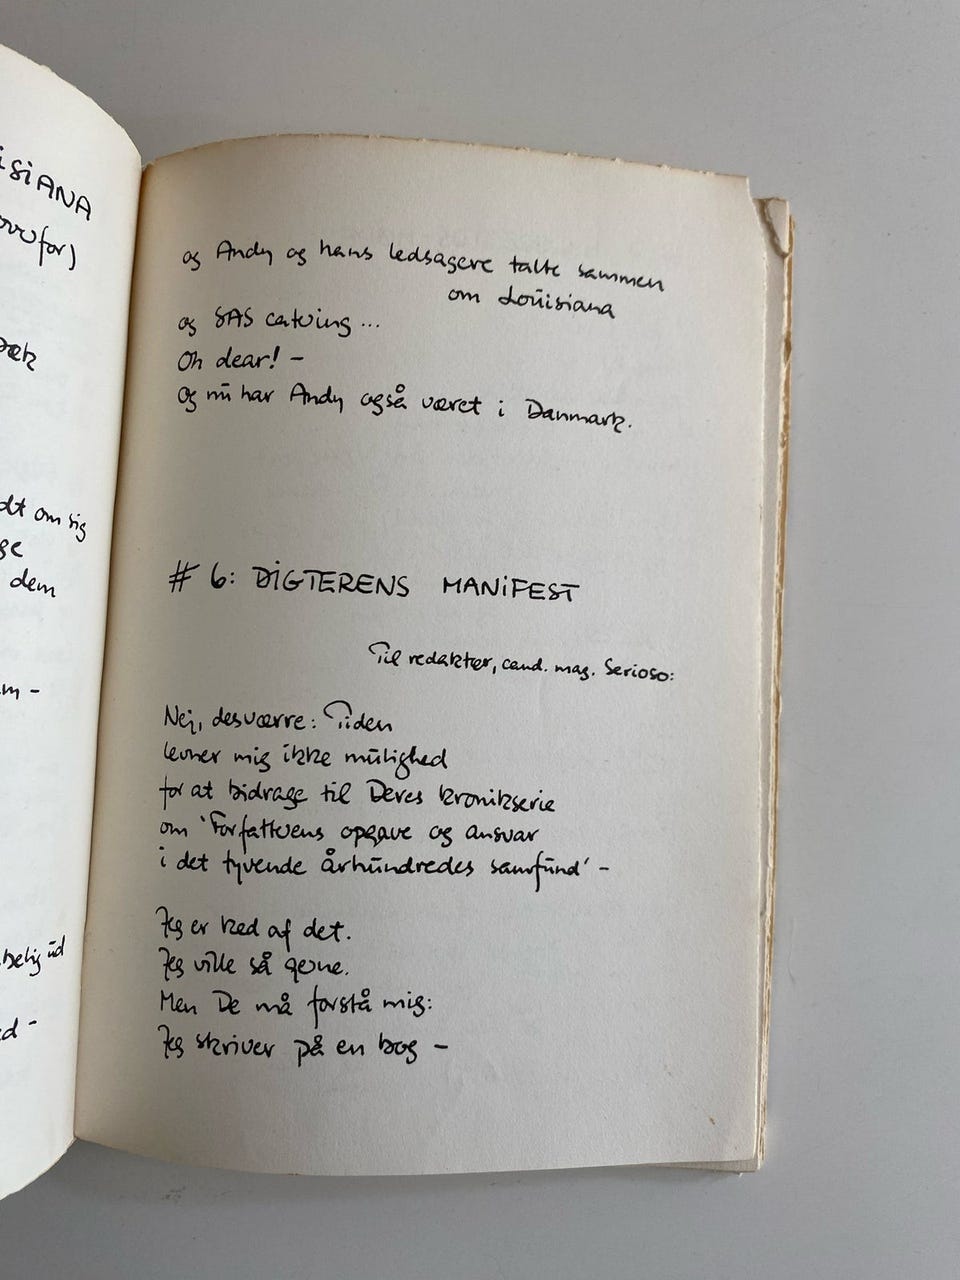 iSiANA
for)
dt om sig
ge
dem
m -
belig ud
ed -
og Andy og hans ledsagere talte sammen
om Louisiana
og SAS catering ...
Oh dear! -
Og nu har Andy også været i Danmark.
# 6: DIGTERENS MANIFEST
Til redaktør, cand. mag. Serioso:
Nej, desværre: Tiden
levner mig ikke mulighed
for at bidrage til Deres kronikserie
om 'Forfatterens opgave og ansvar
i det tyvende århundredes samfund' -
Jeg er ked af det.
Jeg ville så gerne.
Men De må forstå mig:
Jeg skriver på en bog -